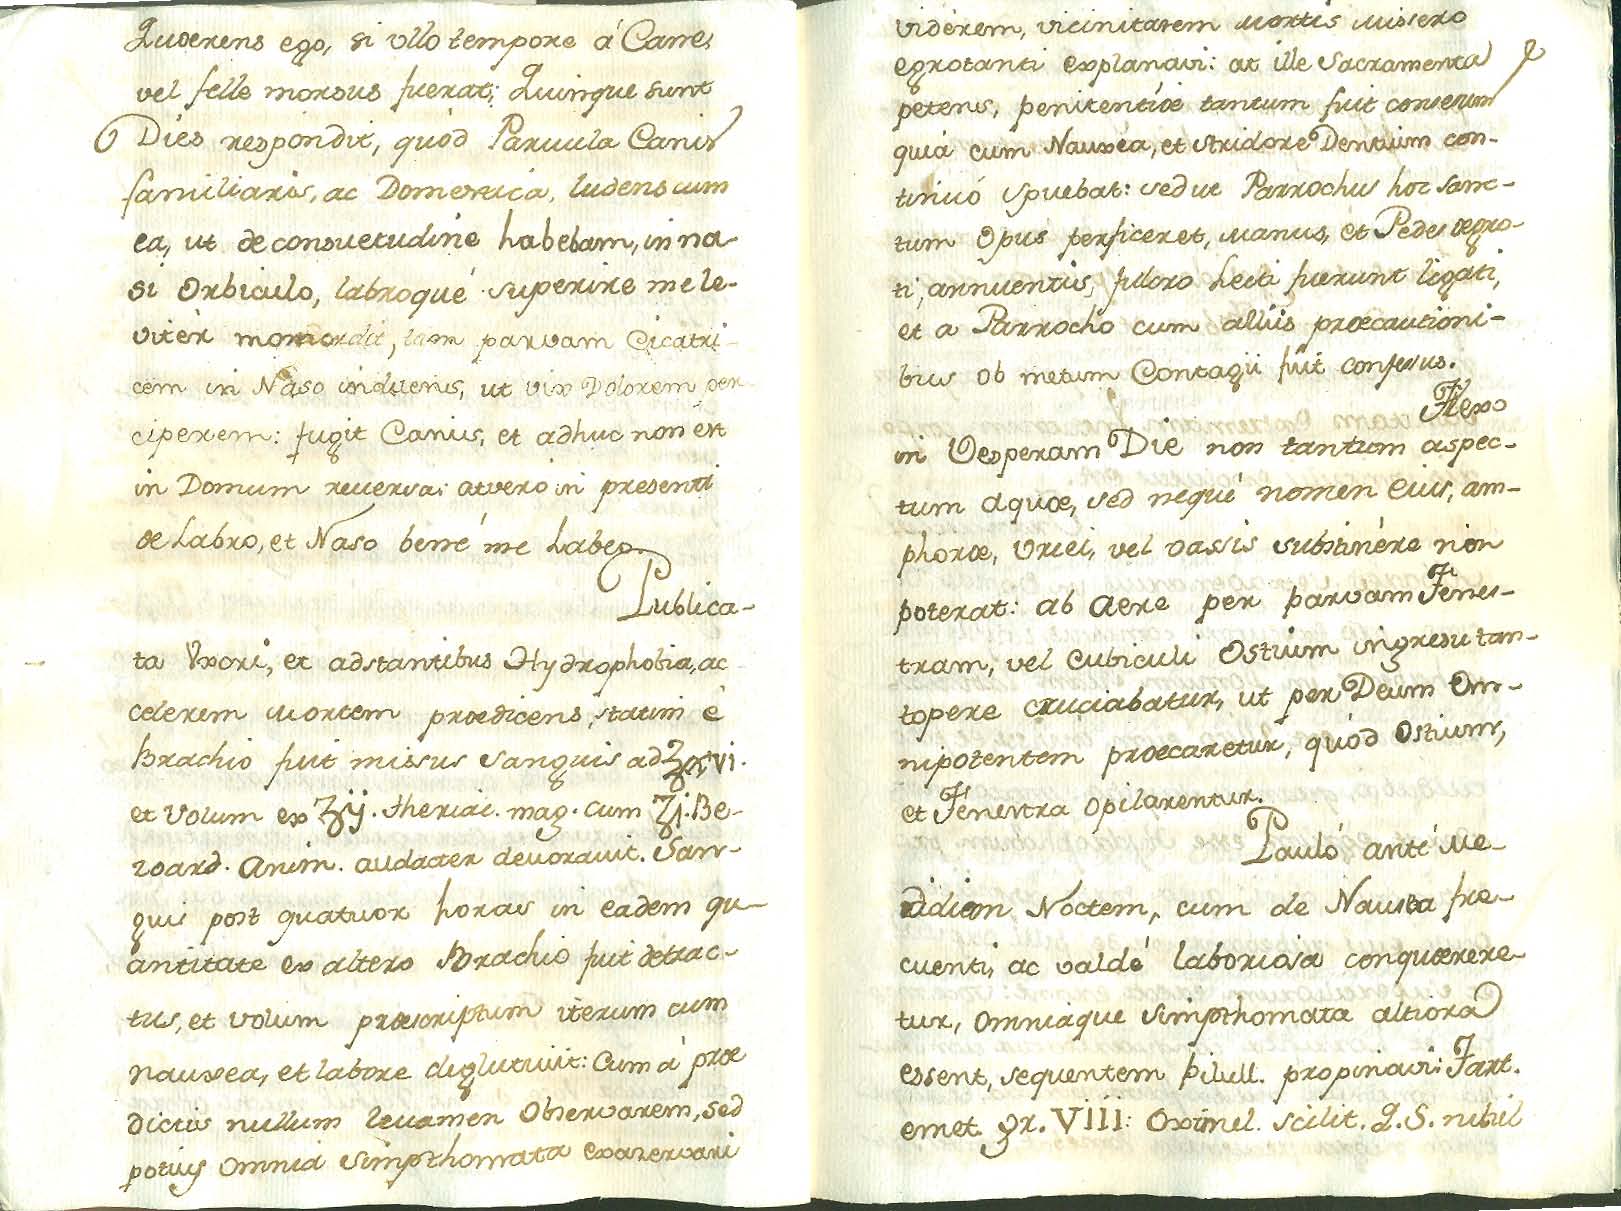 Quoerens ego, si ullo tempore á Cane,
vel felle morsus fuerat; Quinque sunt
Dies respondit, quód Parvula Canis
familiaris, ac Domestica, ludens cum
ea, ut de consuetudine habebam, in na-
si Orbiculo, labroqué superire me le-
vitér momordit, tam parvam Cicatri-
cem in Naso induens, ut vix Dolorem per-
ciperem: fugit Canis, et adhuc non est
in Domum reversa: at vero in presenti
de Labro, et Naso bené me habeo.
Publica-
ta Uxori, et adstantibus Hydrophobia, ac
celerem mortem proedicens, statim é
Brachio fuit missus Sanguis ad ℥xvi.
et Volum ex ʒij. theriac. mag. cum ʒj. Be-
zoard. Anim. audacter devoravit. San-
guis post quatuor horas in eadem qu-
antitate ex altero Brachio fuit detrac-
tus, et Volum proescriptum iterum cum
nausea, et labore deglutivit: Cum á proe
dictis nullum levamen Observarem, sed
potius Omnia Simpthomata exazervari
viderem, vicinitatem mortis missero
egrotanti explanavi: at ille Sacramenta
petens, penitentioe tantum fuit consecutus
quia cum Nausea, et stridore Dentium con-
tinuó spuebat: sed ut Parrochus hoc sanc-
tum Opus perficeret, manus, et Pedes oegro-
ti, annuentis, fulcro Lecti fuerunt ligati,
et a Parrocho cum alliis proecautioni-
bus ob metum Contagii fuit confessus.
Flexo
in Vesperam Die non tantum aspec-
tum aquoe, sed nequé nomen eius, am-
phoroe, Urcei, vel vassis substinére non
poterat: ab Aere per parvam Fenes-
tram, vel Cubiculi Ostium ingresu tan-
topere cruciabatur, ut per Deum Om-
nipotentem proecaretur, quód Ostium,
et Fenestra opilarentur.
Pauló anté me-
didiem Noctem, cum de Nausea fre-
cuenti, ac valdé laboriosa conquoerere-
tur, Omniaque Simpthomata altiora
essent, sequentem pilull. propinavi: Tart.
emet. gr. VIII: Oximel. scilit. q. S. nihil